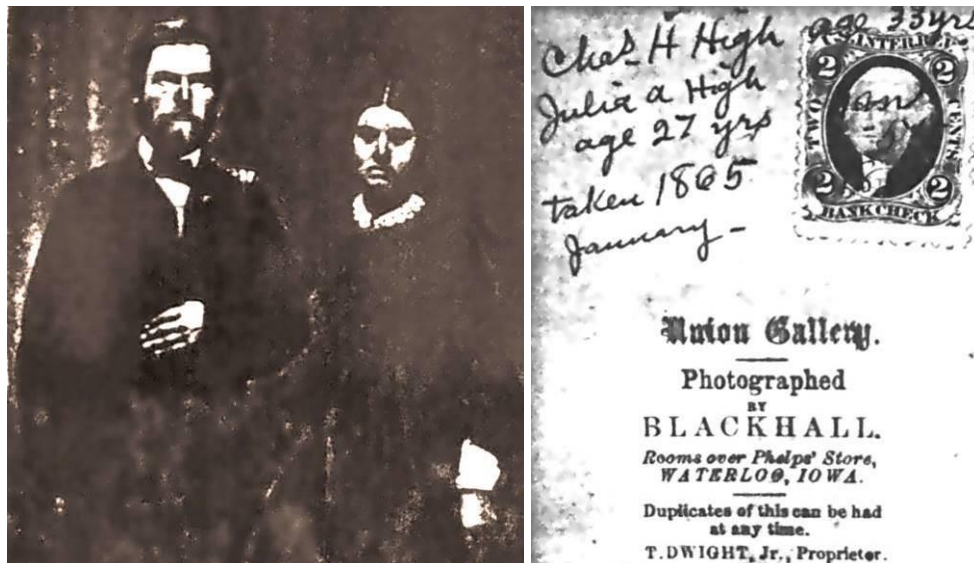 Chas H High age 33yrs
Julia a High
age 27 yrs
taken 1865
January -
INTER
2 2
TWO CENTS
2 2
BANK CHECK
Union Gallery.
Photographed
BY
BLACKHALL.
Rooms over Phelps' Store,
WATERLOO, IOWA.
Duplicates of this can be had
at any time.
T. DWIGHT, Jr., Proprietor.